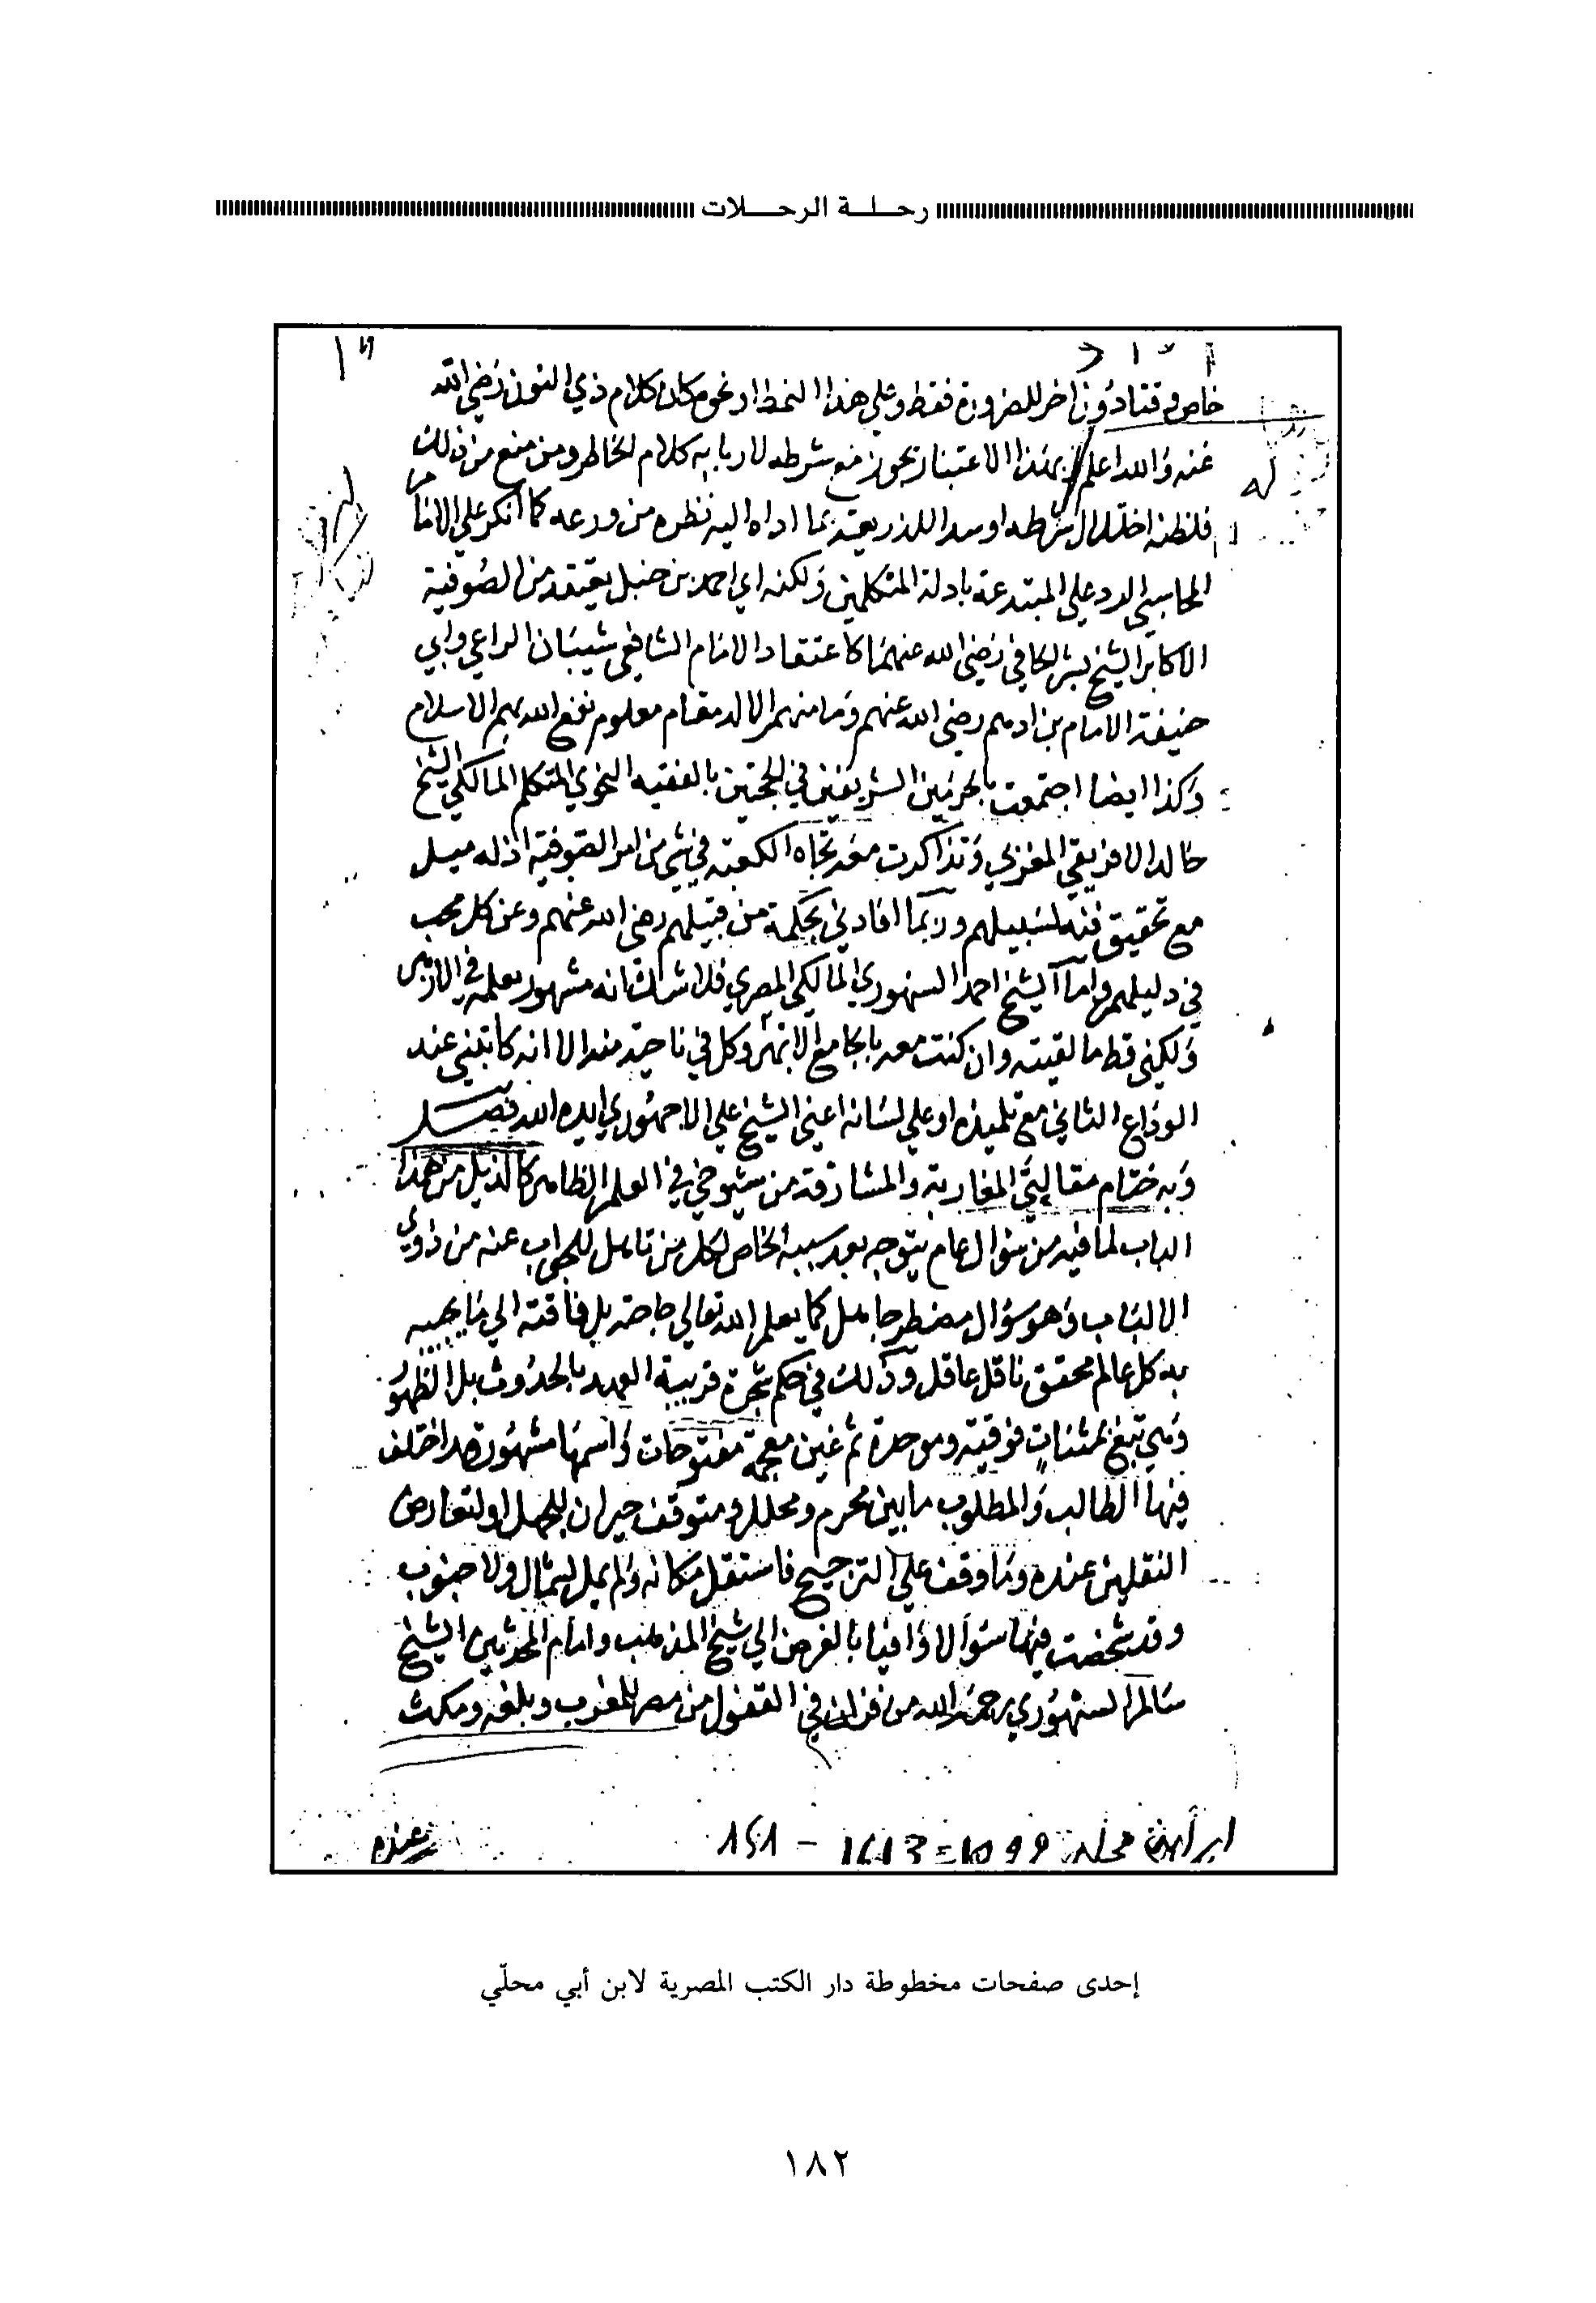 رحلة الرحلات
خاص وقتا دون اخر للضرورة فقط وعلى هذا النمط او نحوه كان كلام ذي النون رضي الله
عنه والله اعلم بهذا الاعتبار يجوز مع شرطه لاربابه كلام الخاطر ومن منع من ذلك
فلظنه اختلال شرطه او سدا للذريعة بما اداه اليه نظره من ورعه كما انكر على الامام
المحاسبي الرد على المبتدعة بادلة المتكلمين ولكنه اي احمد بن حنبل يعتقد من الصوفية
الاكابر الشيخ بشر الحافي رضي الله عنهما كاعتقاد الامام الشافعي شيبان الراعي وابي
حنيفة الامام بن ادهم رضي الله عنهم وما منهم الا له مقام معلوم نفع الله بهم الاسلام
وكذا ايضا اجتمعت بالحرمين الشريفين في الحجتين بالفقيه النحوي المتكلم المالكي الشيخ
خالد الافريقي المغربي وتذاكرت معه تجاه الكعبة في شي من امر الصوفية اذ له ميل
مع تحقيق فيه لسبيلهم وربما افادني بحكمة من قبيلهم رضي الله عنهم وعن كل محب
في دليلهم واما الشيخ احمد السنهوري المالكي المصري فلا شك انه مشهور بعلمه في الازهر
ولكني قط ما لقيته وان كنت معه بالجامع الازهر وكل في ناحية منه الا انه كاتبني عند
الوداع الثاني مع تلميذه او على لسانه اعني الشيخ علي الاجهوري ايده الله فصل
وبه ختام مقالتي المغاربة والمشارقة من شيوخي في العلم الظاهر كالذيل من هذا
الباب لما فيه من سؤال عام يتوجه بعد سببه الخاص لكل من تاهل للجواب عنه من ذوي
الالباب وهو سؤال مضطر جاهل كما يعلم الله تعالى حاجته بل فاقته الى ما يجيبه
به كل عالم محقق ناقل عاقل وذلك في حكم شجرة قريبة العهد بالحدوث بل الظهور
وهي تبغ بمثنات فوقية وموحدة ثم غين معجمة مفتوحات واسمها مشهور قد اختلف
فيها الطالب والمطلوب ما بين محرم ومحلل ومتوقف حيران للجهل او لتعارض
النقلين عنده وما وقف على الترجيح فاستقل مكانه ولم يمل لشمال ولا جنوب
وقد شخصت فيها سؤالا وافيا بالغرض الى شيخ المذهب وامام المحدثين الشيخ
سالم السنهوري رحمه الله من فزان في القفول من مصر للمغرب وبلغه ومكث
عنده
إحدى صفحات مخطوطة دار الكتب المصرية لابن أبي محلّي
١٨٢